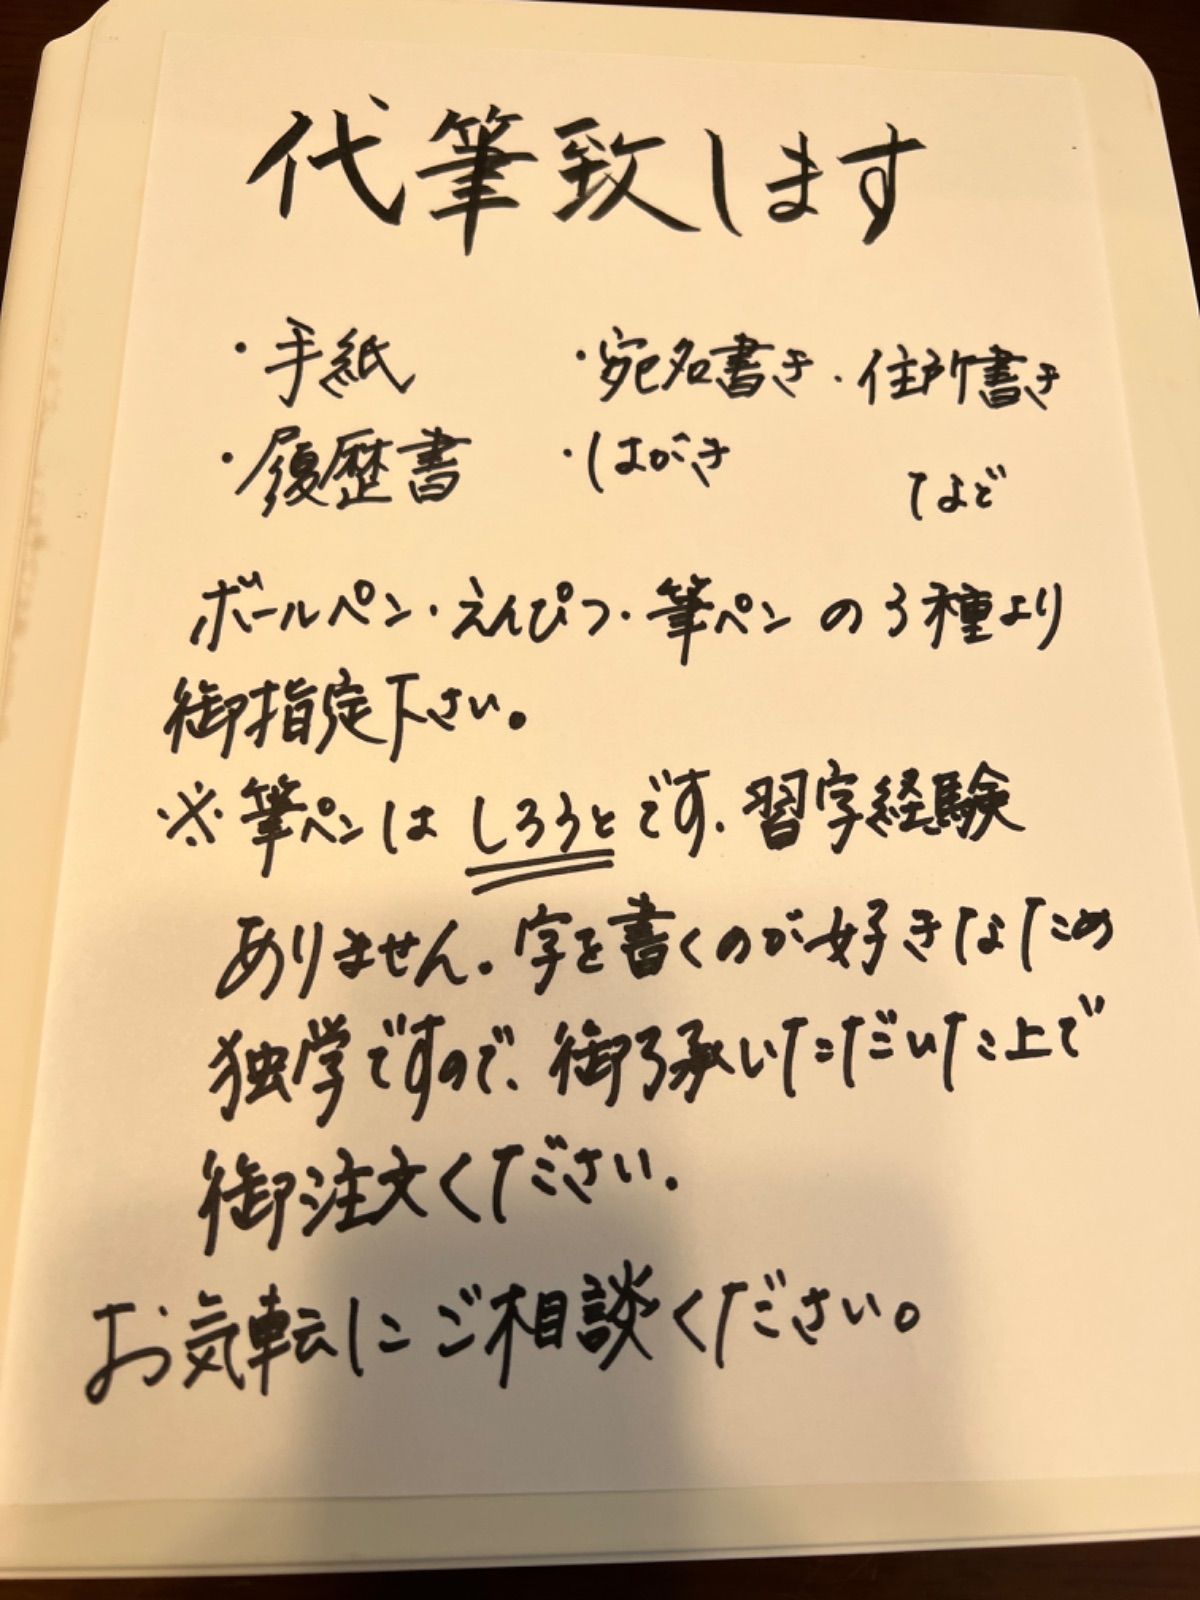 代筆致します
・手紙 ・宛名書き・住所書き
・履歴書 ・はがき など
ボールペン・えんぴつ・筆ペン の3種より
御指定下さい。
※筆ペンはしろうとです、習字経験
ありません。字を書くのが好きなため
独学ですので、御了承いただいた上で
御注文ください。
お気転にご相談ください。